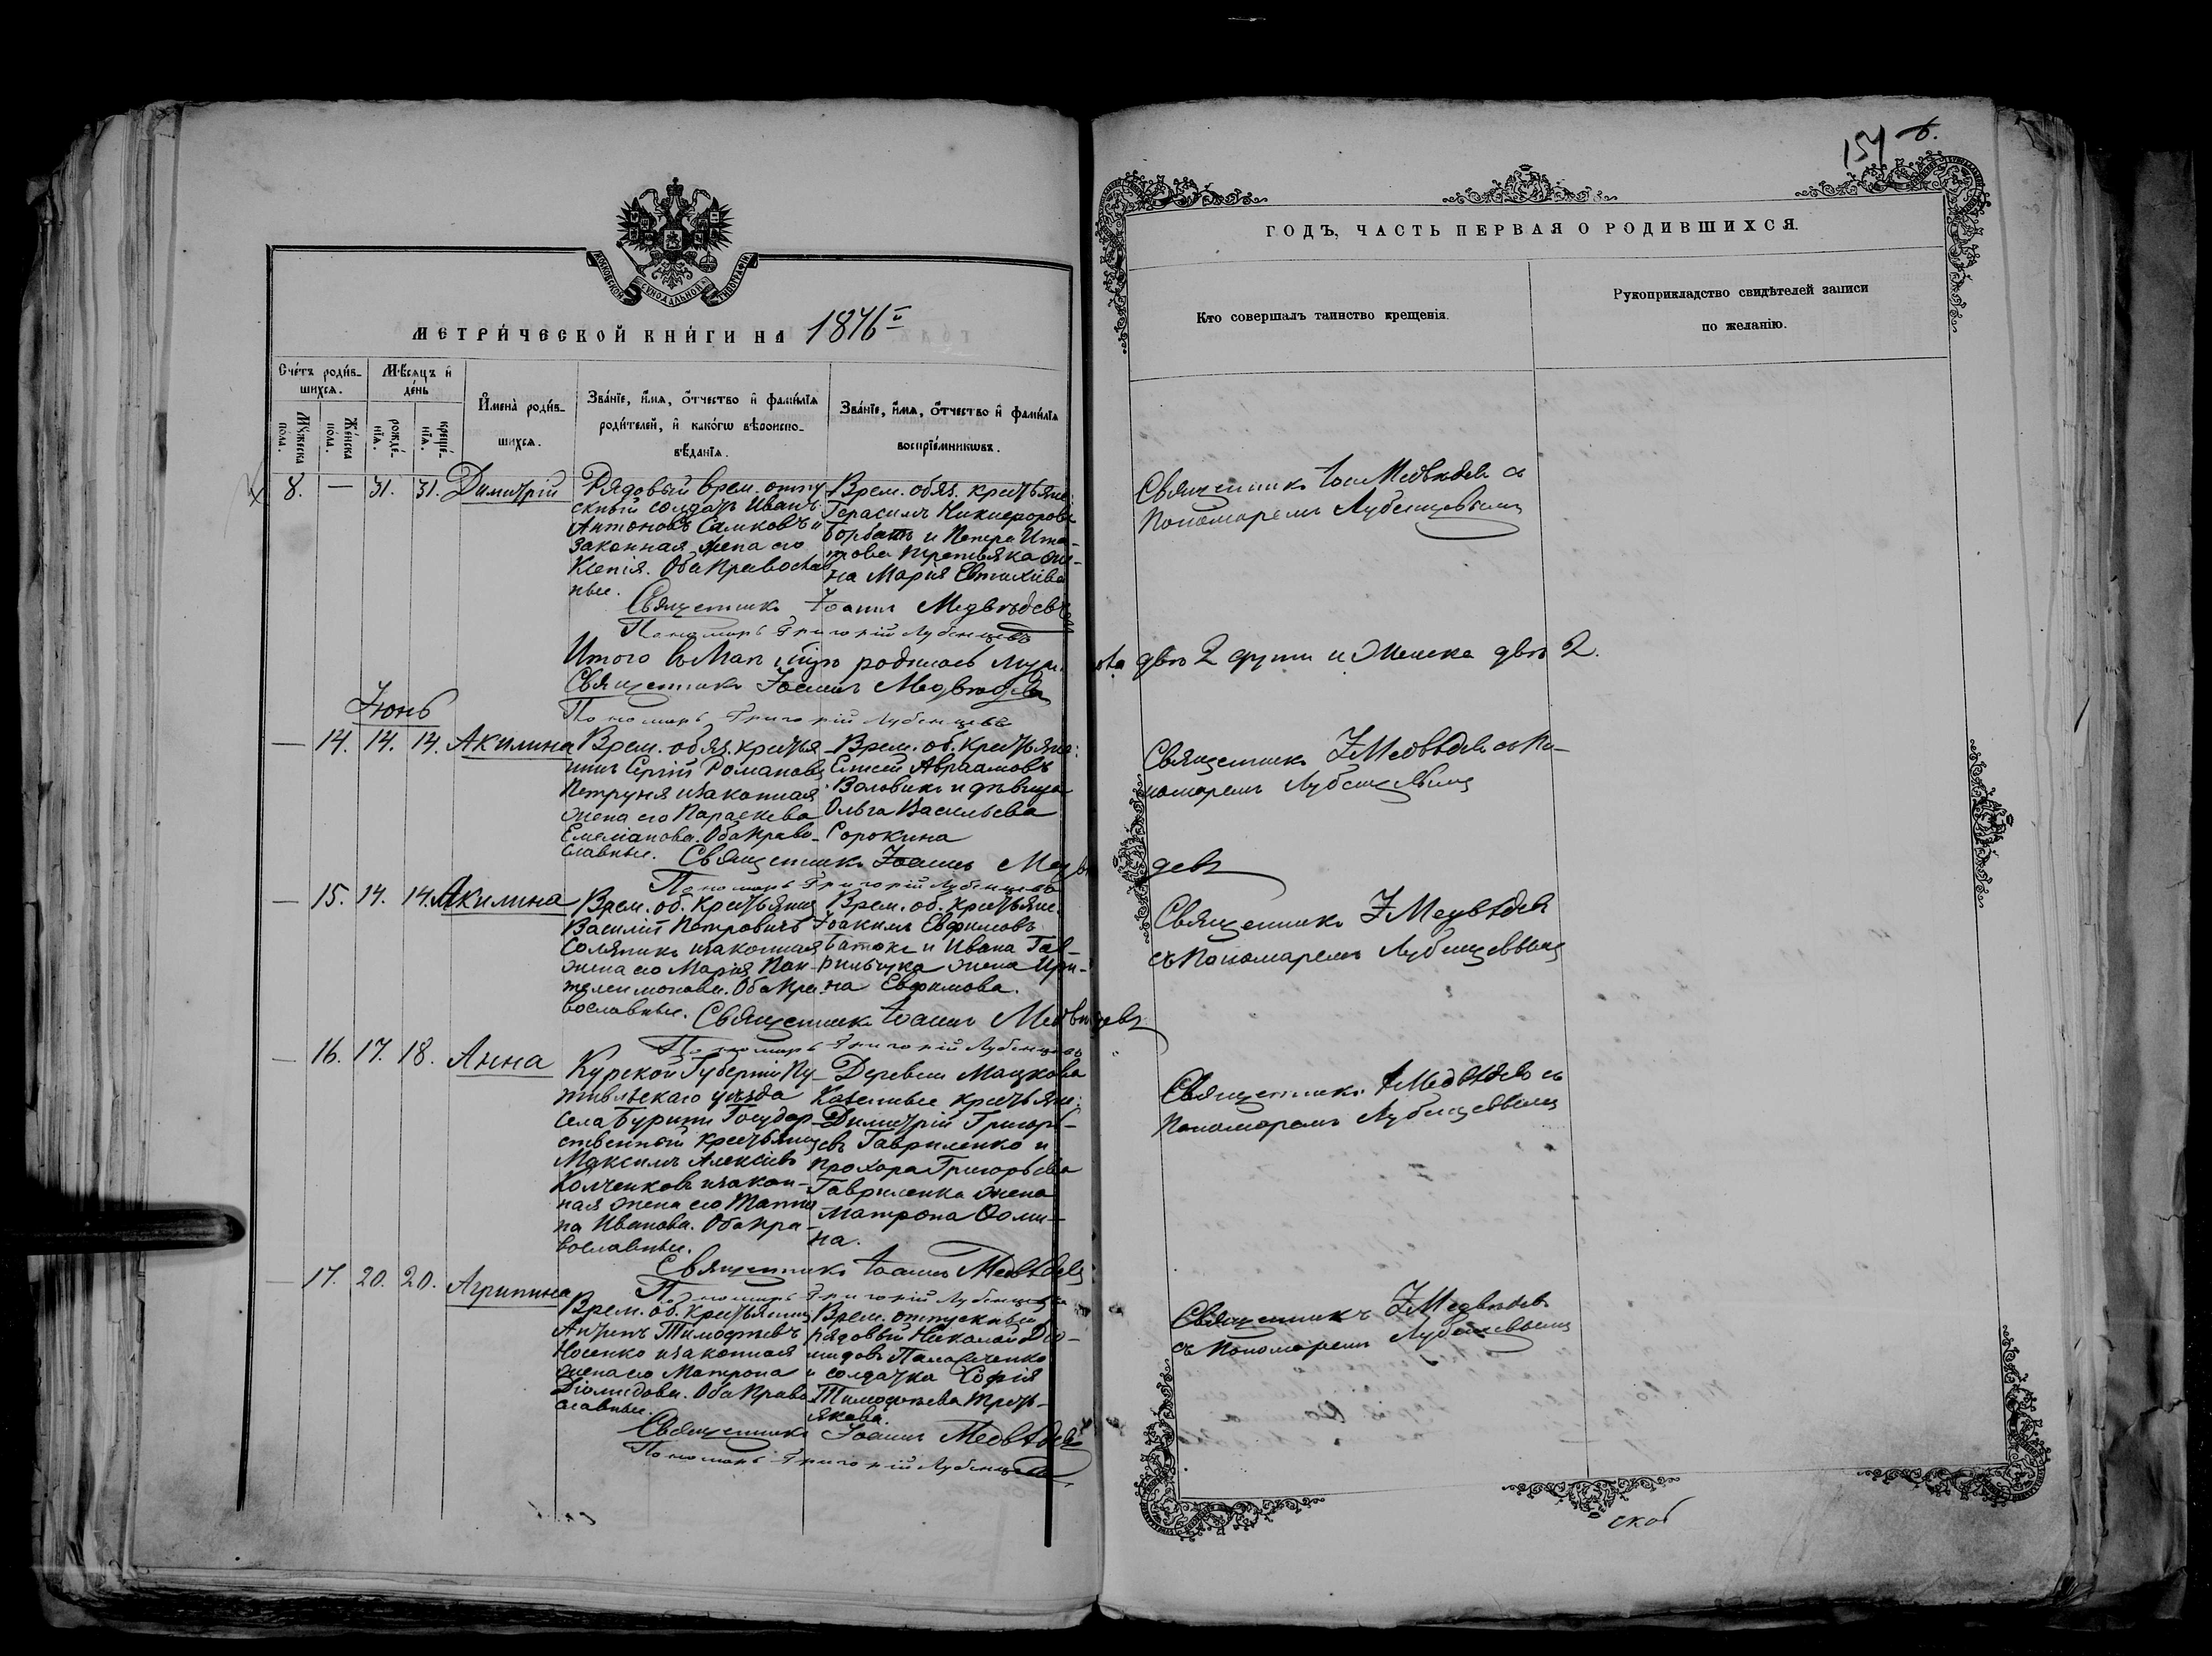 154 б.
МОСКОВСКОЙ СѴНОДАЛЬНОЙ ТИПОГРАФІИ
МЕТРИЧЕСКОЙ КНИГИ НА 1876 й
ГОДЪ, ЧАСТЬ ПЕРВАЯ О РОДИВШИХСЯ.
Счетъ родив-
шихся.
Мѣсяцъ и
день
Мужеска
пола.
Женска
пола.
рожде-
нія.
креще-
нія.
Имена родив-
шихся.
Званіе, имя, отчество и фамилія
родителей, и какогω вѣроиспо-
вѣданія.
Званіе, имя, отчество и фамилія
воспріемниковъ.
Кто совершалъ таинство крещенія.
Рукоприкладство свидѣтелей записи
по желанію.
8. — 31. 31. Димитрій
Рядовый врем. отпу-
скный солдатъ Иванъ
Антоновъ Самковъ и
законная жена его
Ксенія. Оба Православ
ные.
Врем. обяз. крестьяне:
Герасимъ Никифоровъ
Горбань и Петра
Третьяка же-
на Марія Евтихіева
Священникъ Іоаннъ Медвѣдевъ
Пономарь Григорій Лубенцевъ
Священникъ Іоан Медвѣдевъ съ
Пономаремъ Лубенцевымъ
Итого въ Маѣ родилось муж. пола двѣ 2 души и Женска двѣ 2.
Священникъ Іоаннъ Медвѣдевъ
Пономарь Григорій Лубенцевъ
Іюнь
— 14. 14. 14. Акилина
Врем. обяз. крестья-
нинъ Сергій Романовъ
Петруня и законная
жена его Параскева
Емеліанова. Оба Право-
славные.
Врем. об. Крестьяне:
Елисей Авраамовъ
Воловикъ и дѣвица
Ольга Васильева
Сорокина
Священникъ Іоаннъ Медвѣдевъ
Пономарь Григорій Лубенцевъ
Священникъ І Медвѣдевъ съ По-
номаремъ Лубенцевымъ
— 15. 14. 14. Акилина
Врем. об. Крестьянинъ
Василій Петровичъ
Соляникъ и законная
жена его Марія Пан-
телеимонова. Оба Пра-
вославные.
Врем. об. Крестьяне:
Іоакимъ Евфимовъ
Батокъ и Ивана Гав-
рильчука жена Ири-
на Евфимова.
Священникъ Іоаннъ Медвѣдевъ
Пономарь Григорій Лубенцевъ
Священникъ І Медвѣдевъ
съ Пономаремъ Лубенцевымъ
— 16. 17. 18. Анна
Курской Губерніи Пу-
тивльскаго уѣзда
села Бурыни Государ-
ственный крестьянинъ
Максимъ Алексіевъ
Колченковъ и закон-
ная жена его Татіа
на Иванова. Оба Пра-
вославные.
Деревни Мацкова
Казенные крестьяне:
Димитрій Григорь-
евъ Гавриленко и
Прохора Григорьева
Гавриленка жена
Матрона Ѳоми-
на.
Священникъ Іоаннъ Медвѣдевъ
Пономарь Григорій Лубенцевъ
Священникъ І Медвѣдевъ съ
Пономаремъ Лубенцевымъ
— 17. 20. 20. Агрипина
Врем. об. Крестьянинъ
Антипъ Тимофѣевъ
Носенко и законная
жена его Матрона
Діомидова. Оба Право
славные.
Врем. отпускный
рядовый Николай Діо-
мидовъ
и солдатка Софія
Тимофѣева Треть-
якова.
Священникъ Іоаннъ Медвѣдевъ
Пономарь Григорій Лубенцевъ
Священникъ І Медвѣдевъ
съ Пономаремъ Лубенцевымъ
скоб